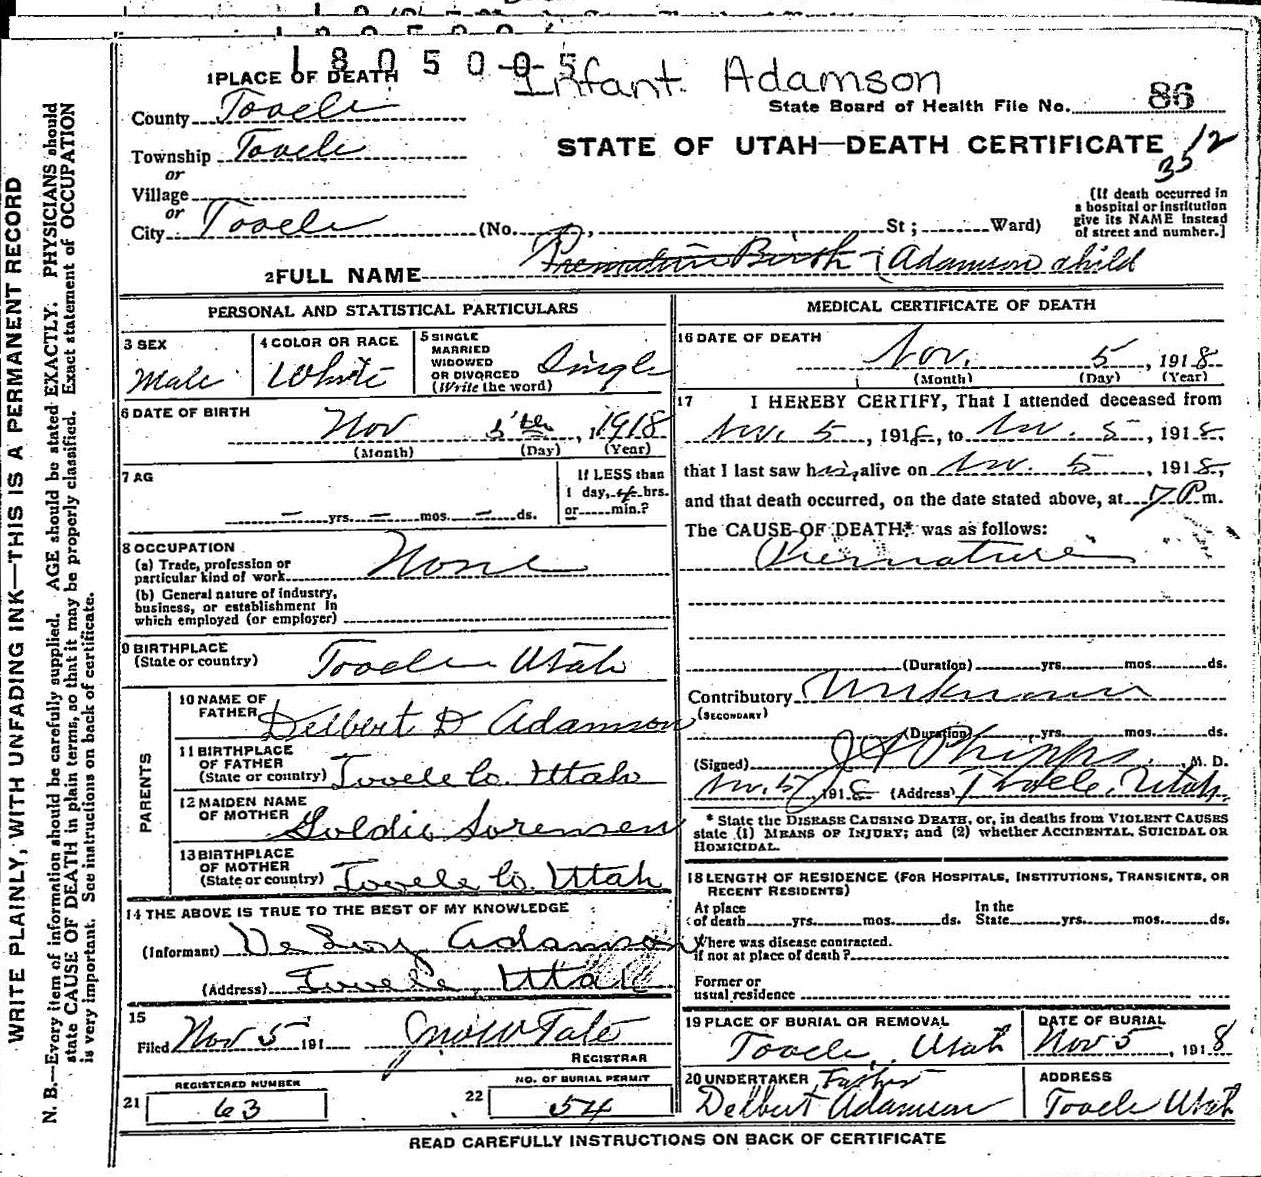 1805005
Infant. Adamson
1 PLACE OF DEATH
State Board of Health File No. 86
County Tooele
Township Tooele
STATE OF UTAH—DEATH CERTIFICATE
12
35
or
Village
or
City Tooele (No. , St ; Ward)
[If death occurred in
a hospital or institution
give its NAME instead
of street and number.]
2 FULL NAME Premature Birth (Adamson child
PERSONAL AND STATISTICAL PARTICULARS
3 SEX
Male
4 COLOR OR RACE
White
5 SINGLE
MARRIED
WIDOWED
OR DIVORCED
(Write the word)
Single
6 DATE OF BIRTH
Nov 5th, 1918
(Month) (Day) (Year)
7 AG
— yrs. — mos. — ds.
If LESS than
1 day, hrs.
or min.?
8 OCCUPATION
(a) Trade, profession or
particular kind of work None
(b) General nature of industry,
business, or establishment in
which employed (or employer)
9 BIRTHPLACE
(State or country)
Tooele Utah
PARENTS
10 NAME OF
FATHER
Delbert D Adamson
11 BIRTHPLACE
OF FATHER
(State or country) Tooele Co. Utah
12 MAIDEN NAME
OF MOTHER
Goldie Sorensen
13 BIRTHPLACE
OF MOTHER
(State or country) Tooele Co. Utah
14 THE ABOVE IS TRUE TO THE BEST OF MY KNOWLEDGE
(Informant) DeLroy Adamson
(Address) Tooele, Utah
15
Filed Nov 5 191
REGISTRAR
REGISTERED NUMBER
21 63
NO. OF BURIAL PERMIT
22 54
MEDICAL CERTIFICATE OF DEATH
16 DATE OF DEATH
Nov. 5, 1918
(Month) (Day) (Year)
17 I HEREBY CERTIFY, That I attended deceased from
Nov. 5, 1918, to Nov. 5, 1918,
that I last saw him alive on Nov. 5, 1918,
and that death occurred, on the date stated above, at 7 P.m.
The CAUSE OF DEATH* was as follows:
Premature
(Duration) yrs. mos. ds.
Contributory Unknown
(SECONDARY)
(Duration) yrs. mos. ds.
(Signed) J A Phipps M. D.
Nov. 5, 1918 (Address) Tooele, Utah.
* State the DISEASE CAUSING DEATH, or, in deaths from VIOLENT CAUSES
state (1) MEANS OF INJURY; and (2) whether ACCIDENTAL, SUICIDAL OR
HOMICIDAL.
18 LENGTH OF RESIDENCE (FOR HOSPITALS, INSTITUTIONS, TRANSIENTS, OR
RECENT RESIDENTS)
At place
of death yrs. mos. ds.
In the
State yrs. mos. ds.
Where was disease contracted.
if not at place of death?
Former or
usual residence
19 PLACE OF BURIAL OR REMOVAL
Tooele, Utah
DATE OF BURIAL
Nov 5, 1918
20 UNDERTAKER Father
Delbert Adamson
ADDRESS
Tooele Utah
READ CAREFULLY INSTRUCTIONS ON BACK OF CERTIFICATE
WRITE PLAINLY, WITH UNFADING INK—THIS IS A PERMANENT RECORD
N. B.—Every item of information should be carefully supplied. AGE should be stated EXACTLY. PHYSICIANS should
state CAUSE OF DEATH in plain terms, so that it may be properly classified. Exact statement of OCCUPATION
is very important. See instructions on back of certificate.